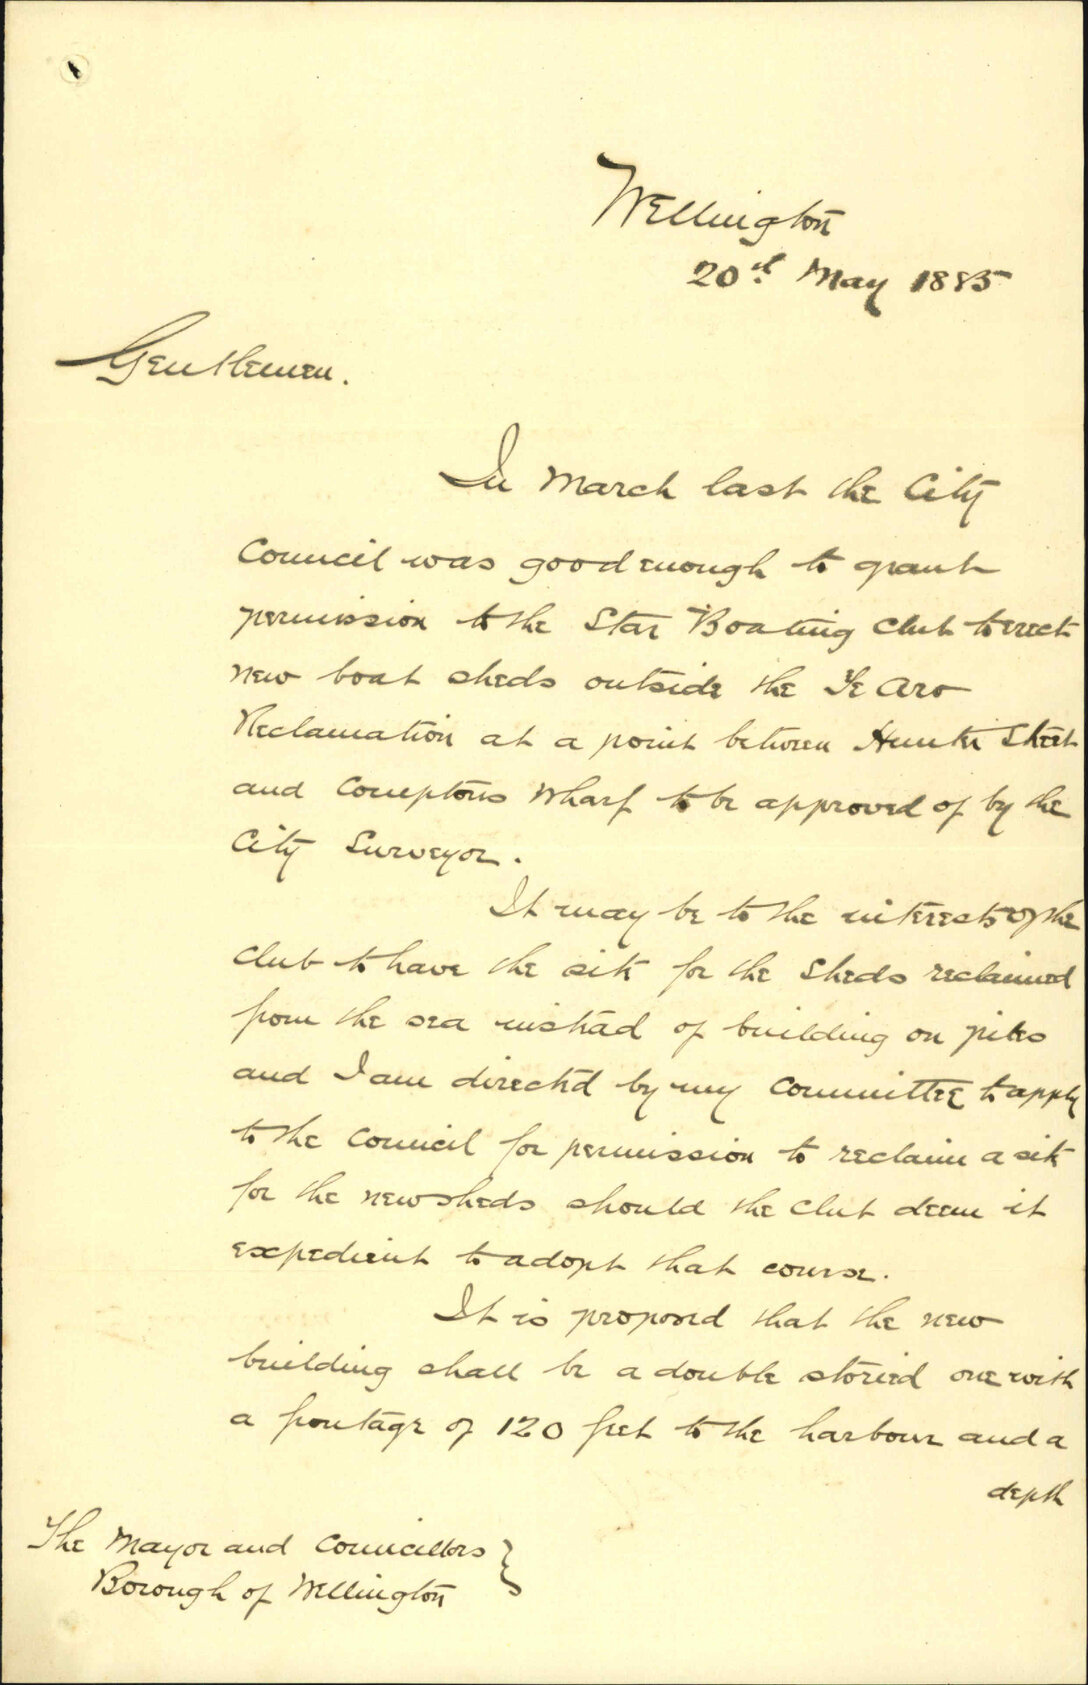 Wellington
20th May 1885
Gentlemen.
In March last the City
Council was good enough to grant
permission to the Star Boating Club to erect
new boat sheds outside the Te Aro
Reclamation at a point between Hunter Street
and Comptons Wharf to be approved of by the
City Surveyor.
It may be to the interests of the
Club to have the site for the sheds reclaimed
from the sea instead of building on piles
and I am directed by my Committee to apply
to the Council for permission to reclaim a site
for the new sheds should the Club deem it
expedient to adopt that course.
It is proposed that the new
building shall be a double storied one with
a frontage of 120 feet to the harbour and a
depth
The Mayor and Councillors }
Borough of Wellington